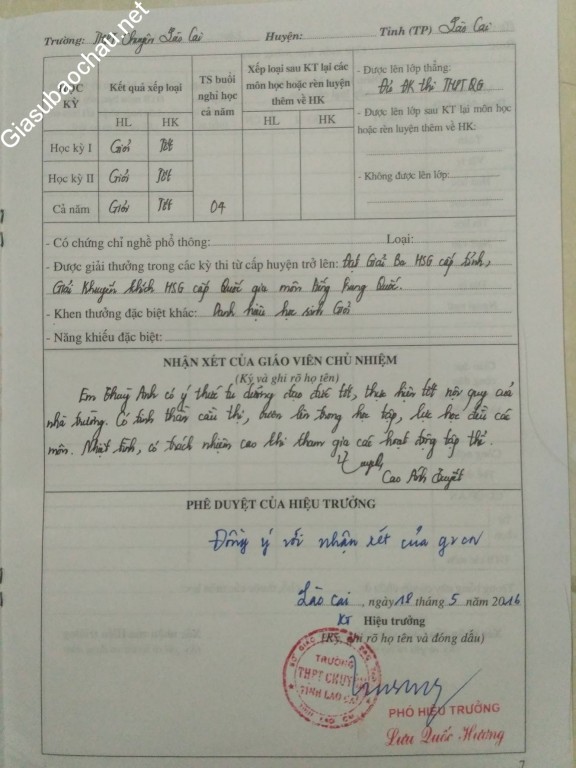 Giasubaochau.net
Trường: THPT Chuyên Lào Cai Huyện: Tỉnh (TP) Lào Cai
HỌC KỲ
Kết quả xếp loại
HL HK
TS buổi nghỉ học cả năm
Xếp loại sau KT lại các môn học hoặc rèn luyện thêm về HK
HL HK
- Được lên lớp thẳng:
Đủ ĐK thi THPT QG
- Được lên lớp sau KT lại môn học
hoặc rèn luyện thêm về HK:
- Không được lên lớp:
Học kỳ I Giỏi Tốt
Học kỳ II Giỏi Tốt
Cả năm Giỏi Tốt 04
- Có chứng chỉ nghề phổ thông: Loại:
- Được giải thưởng trong các kỳ thi từ cấp huyện trở lên: Đạt Giải Ba HSG cấp tỉnh,
Giải Khuyến khích HSG cấp Quốc gia môn tiếng Trung Quốc.
- Khen thưởng đặc biệt khác: Danh hiệu học sinh Giỏi
- Năng khiếu đặc biệt:
NHẬN XÉT CỦA GIÁO VIÊN CHỦ NHIỆM
(Ký và ghi rõ họ tên)
Em Thuỳ Anh có ý thức tu dưỡng đạo đức tốt, thực hiện tốt nội quy của
nhà trường. Có tinh thần cầu thị, vươn lên trong học tập, lực học đều các
môn. Nhiệt tình, có trách nhiệm cao khi tham gia các hoạt động tập thể.
Cao Ánh Tuyết
PHÊ DUYỆT CỦA HIỆU TRƯỞNG
Đồng ý với nhận xét của gvcn
Lào Cai, ngày 18 tháng 5 năm 2016
KT Hiệu trưởng
(Ký, ghi rõ họ tên và đóng dấu)
TRƯỜNG
THPT CHUYÊN
TỈNH LÀO CAI
PHÓ HIỆU TRƯỞNG
Lưu Quốc Hương
7